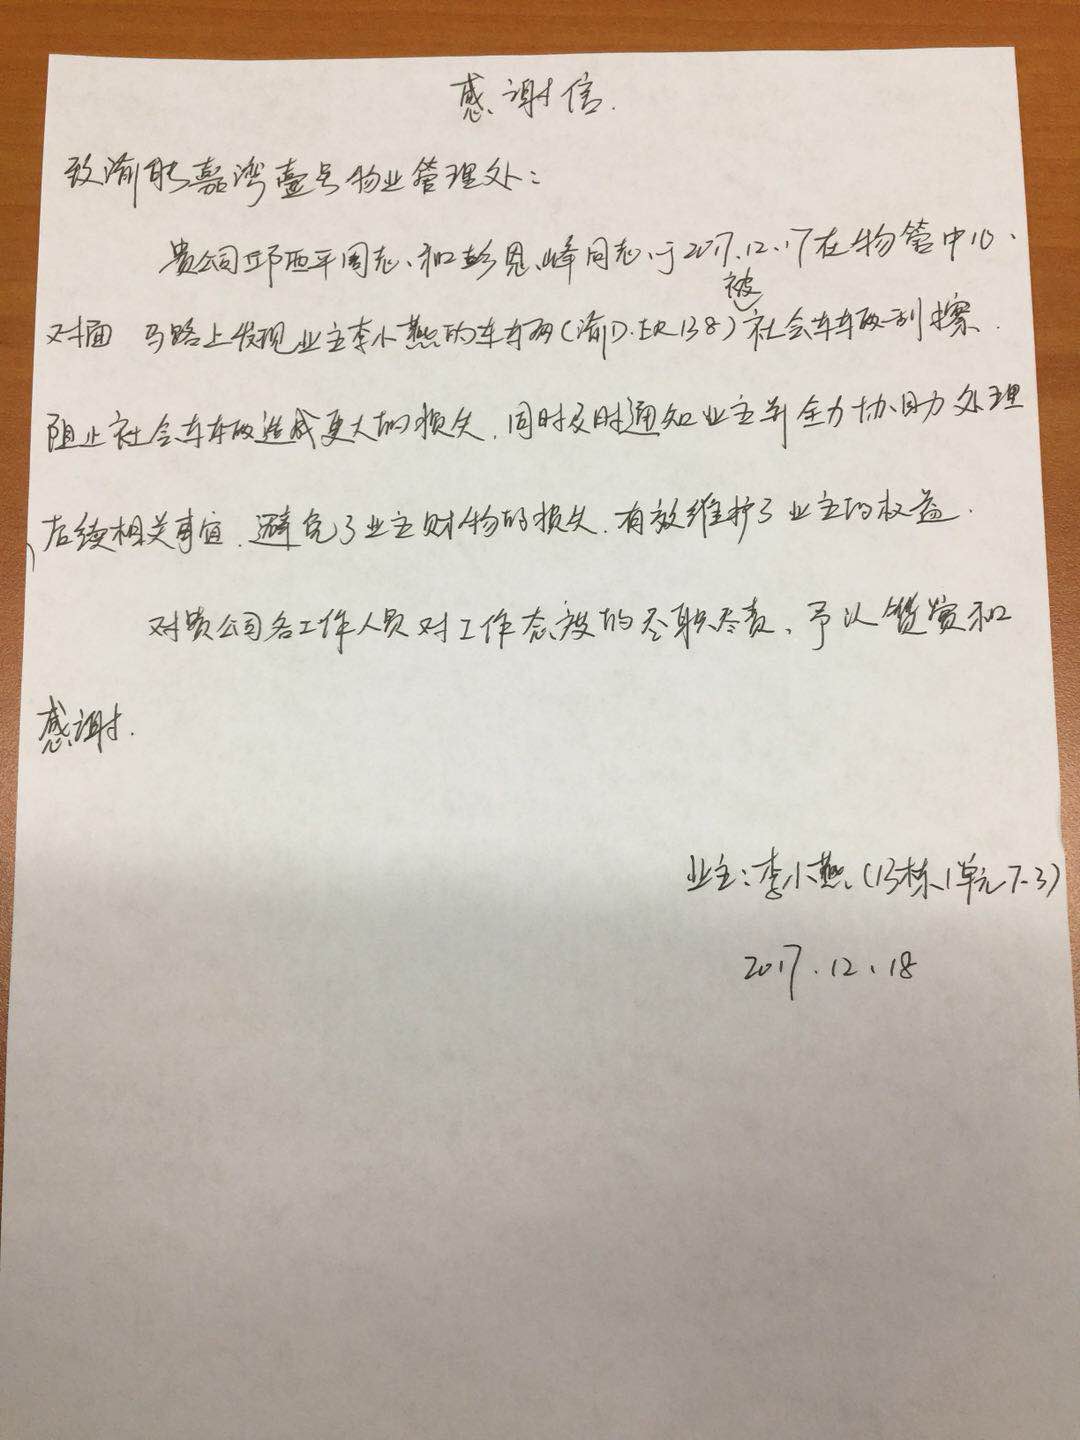 感谢信.
致渝能嘉湾壹号物业管理处:
贵公司邱西平同志、和彭恩峰同志、于2017.12.17在物管中心、
被
对面 马路上发现业主李小燕的车车辆(渝D.ER138)社会车车辆刮擦.
阻止社会车车辆造成更大的损失.同时及时通知业主并全力协助处理
后续相关事宜.避免了业主财物的损失.有效维护了业主的权益.
对贵公司各工作人员对工作态度的尽职尽责、予以赞赏和
感谢.
业主:李小燕(13栋1单元7-3)
2017.12.18